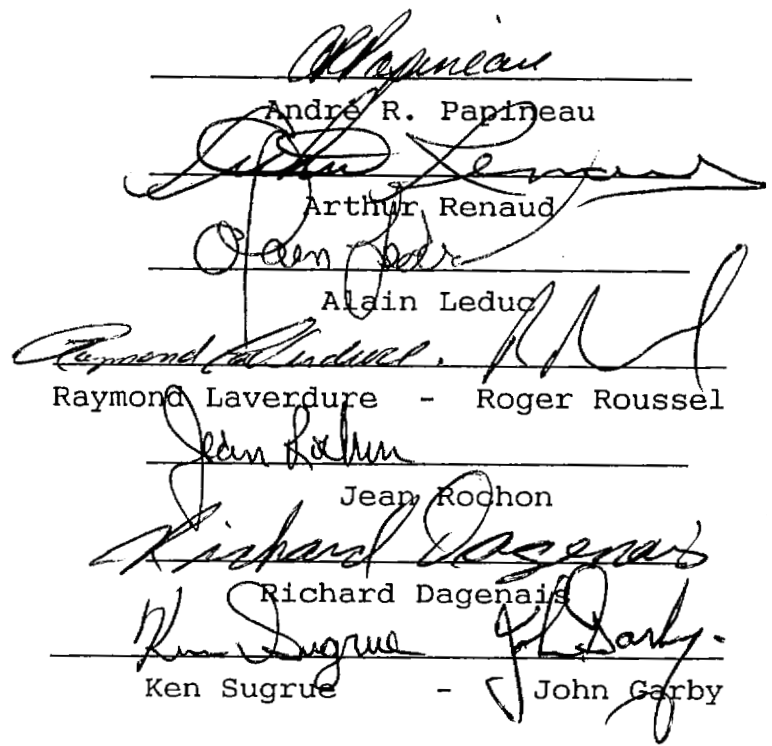 APapineau
André R. Papineau
Arthur Renaud
Arthur Renaud
Alain Leduc
Alain Leduc
Raymond Laverdure.
Raymond Laverdure - Roger Roussel
Jean Rochon
Jean Rochon
Richard Dagenais
Richard Dagenais
Ken Sugrue J Garby.
Ken Sugrue - John Garby